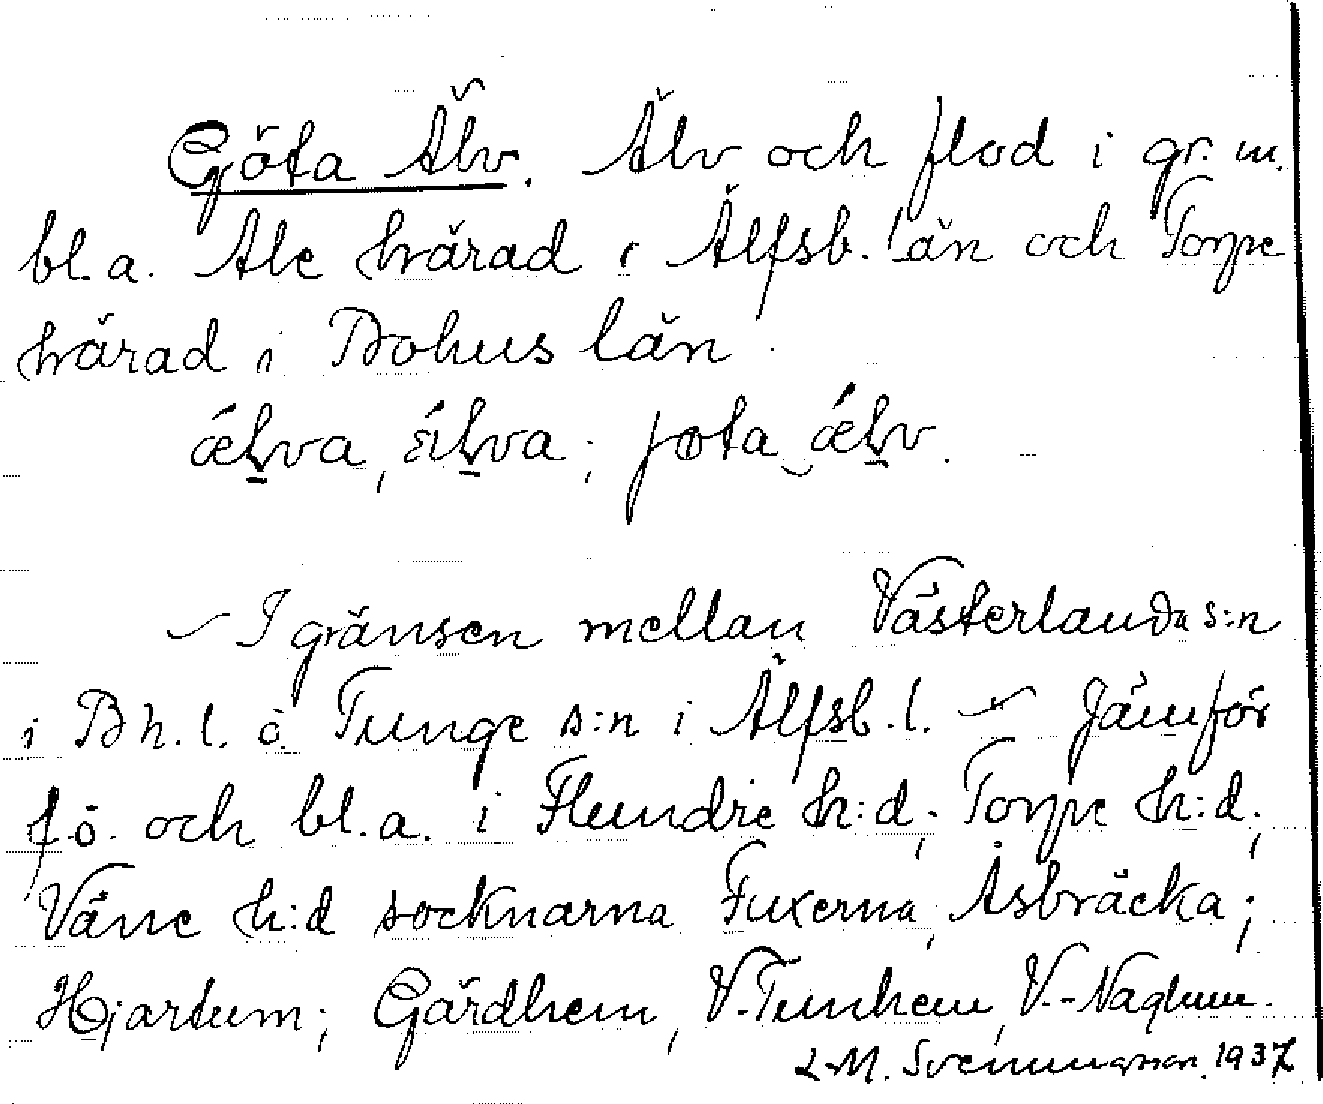 Göta Älv. Älv och flod i gr. m.
bl.a. Ale härad i Älfsb. län och Torpe
härad i Bohus län.
ǽḻva, ǽiḻva; jøta‿ǽḻv.
– I gränsen mellan Västerlanda s:n
i Bh.l. o. Tunge s:n i Älfsb.l. – Jämför
f.ö. och bl.a. i Flundre h:d; Torpe h:d;
Väne h:d socknarna Fuxerna, Åsbräcka;
Hjartum; Gärdhem, V.Tunhem, V.-Naglum.
L-M. Svenungsson. 1937